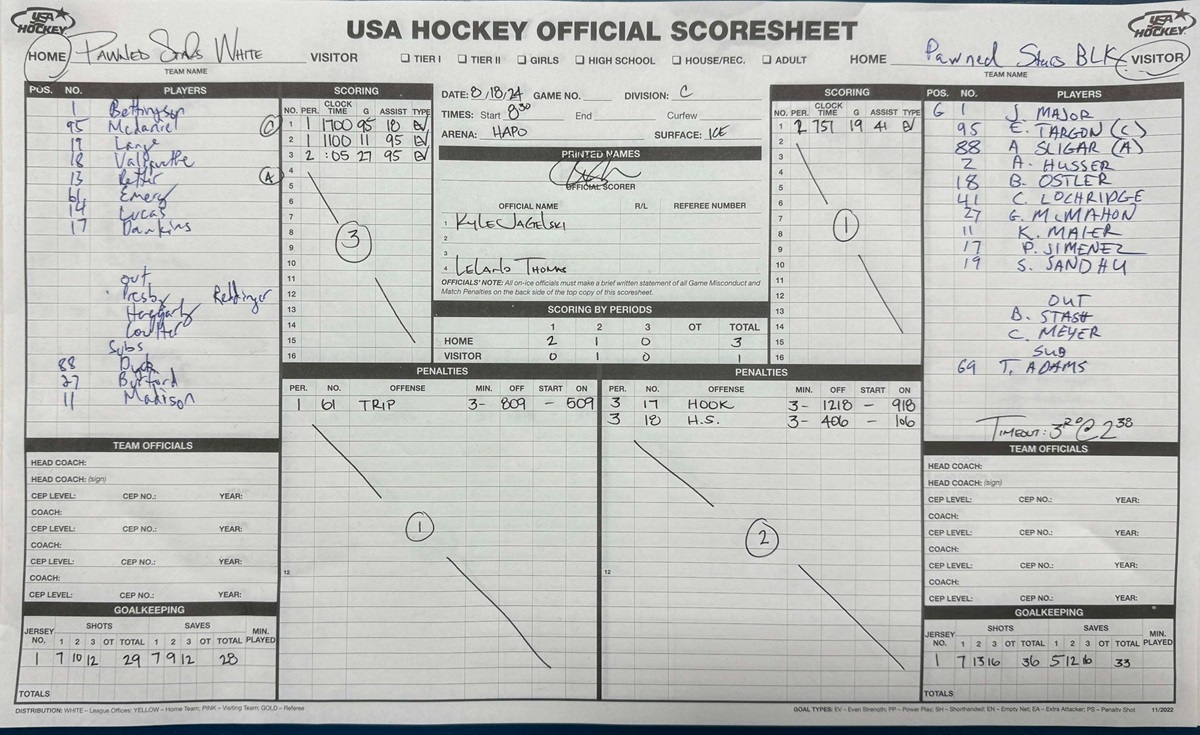 USA HOCKEY
USA HOCKEY OFFICIAL SCORESHEET
USA HOCKEY
HOME Pawned Stars White VISITOR TIER I TIER II GIRLS HIGH SCHOOL HOUSE/REC. ADULT HOME Pawned Stars BLK VISITOR
TEAM NAME TEAM NAME
POS. NO. PLAYERS
1 Bettingson
95 McDaniel (C)
19 Lange
18
13 (A)
61 Emery
14 Lucas
17 Dankins
out
Presby
Haggarty
Coulter
Subs
88
27
11 Madison
SCORING
NO. PER. CLOCK TIME G ASSIST TYPE
1 1 1700 95 18 EV
2 1 1100 11 95 EV
3 2 :05 27 95 EV
4
5
6
7
8
9
10
11
12
13
14
15
16
3
DATE: 8/18/24 GAME NO. DIVISION: C
TIMES: Start 8:30 End Curfew
ARENA: HAPO SURFACE: ICE
PRINTED NAMES
OFFICIAL SCORER
OFFICIAL NAME R/L REFEREE NUMBER
1 KYLE JAGELSKI
2
3
4 LELAND THOMAS
OFFICIALS' NOTE: All on-ice officials must make a brief written statement of all Game Misconduct and
Match Penalties on the back side of the top copy of this scoresheet.
SCORING BY PERIODS
1 2 3 OT TOTAL
HOME 2 1 0 3
VISITOR 0 1 0 1
SCORING
NO. PER. CLOCK TIME G ASSIST TYPE
1 2 757 19 41 EV
2
3
4
5
6
7
8
9
10
11
12
13
14
15
16
1
POS. NO. PLAYERS
G 1 J. MAJOR
95 E. TARGON (C)
88 A SLIGAR (A)
2 A. HUSSER
18 B. OSTLER
41 C. LOCHRIDGE
27 G. McMAHON
11 K. MAIER
17 P. JIMENEZ
19 S. SANDHU
OUT
B. STASH
C. MEYER
SUB
69 T. ADAMS
TIMEOUT: 3rd @ 2:38
PENALTIES
PER. NO. OFFENSE MIN. OFF START ON
1 61 TRIP 3- 809 - 509
1
12
PENALTIES
PER. NO. OFFENSE MIN. OFF START ON
3 17 HOOK 3- 1218 - 918
3 18 H.S. 3- 406 - 106
2
12
TEAM OFFICIALS
HEAD COACH:
HEAD COACH: (sign)
CEP LEVEL: CEP NO.: YEAR:
COACH:
CEP LEVEL: CEP NO.: YEAR:
COACH:
CEP LEVEL: CEP NO.: YEAR:
COACH:
CEP LEVEL: CEP NO.: YEAR:
TEAM OFFICIALS
HEAD COACH:
HEAD COACH: (sign)
CEP LEVEL: CEP NO.: YEAR:
COACH:
CEP LEVEL: CEP NO.: YEAR:
COACH:
CEP LEVEL: CEP NO.: YEAR:
COACH:
CEP LEVEL: CEP NO.: YEAR:
GOALKEEPING
JERSEY NO. SHOTS SAVES MIN. PLAYED
1 2 3 OT TOTAL 1 2 3 OT TOTAL
1 7 10 12 29 7 9 12 28
TOTALS
GOALKEEPING
JERSEY NO. SHOTS SAVES MIN. PLAYED
1 2 3 OT TOTAL 1 2 3 OT TOTAL
1 7 13 16 36 5 12 16 33
TOTALS
DISTRIBUTION: WHITE – League Offices: YELLOW – Home Team; PINK – Visiting Team; GOLD – Referee
GOAL TYPES: EV – Even Strength; PP – Power Play; SH – Shorthanded; EN – Empty Net; EA – Extra Attacker; PS – Penalty Shot 11/2022